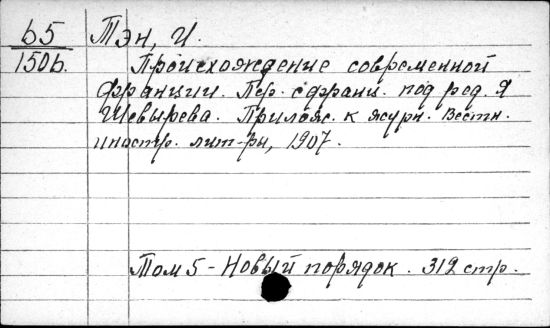 65 Тэн, И.
150б. Происхождение современной
Франции. Пер. с франц. под ред. Я
Шевырева. Прилож. к журн. Вестн.
иностр. лит-ры, 1907.
Том 5 - Новый порядок. 312 стр.